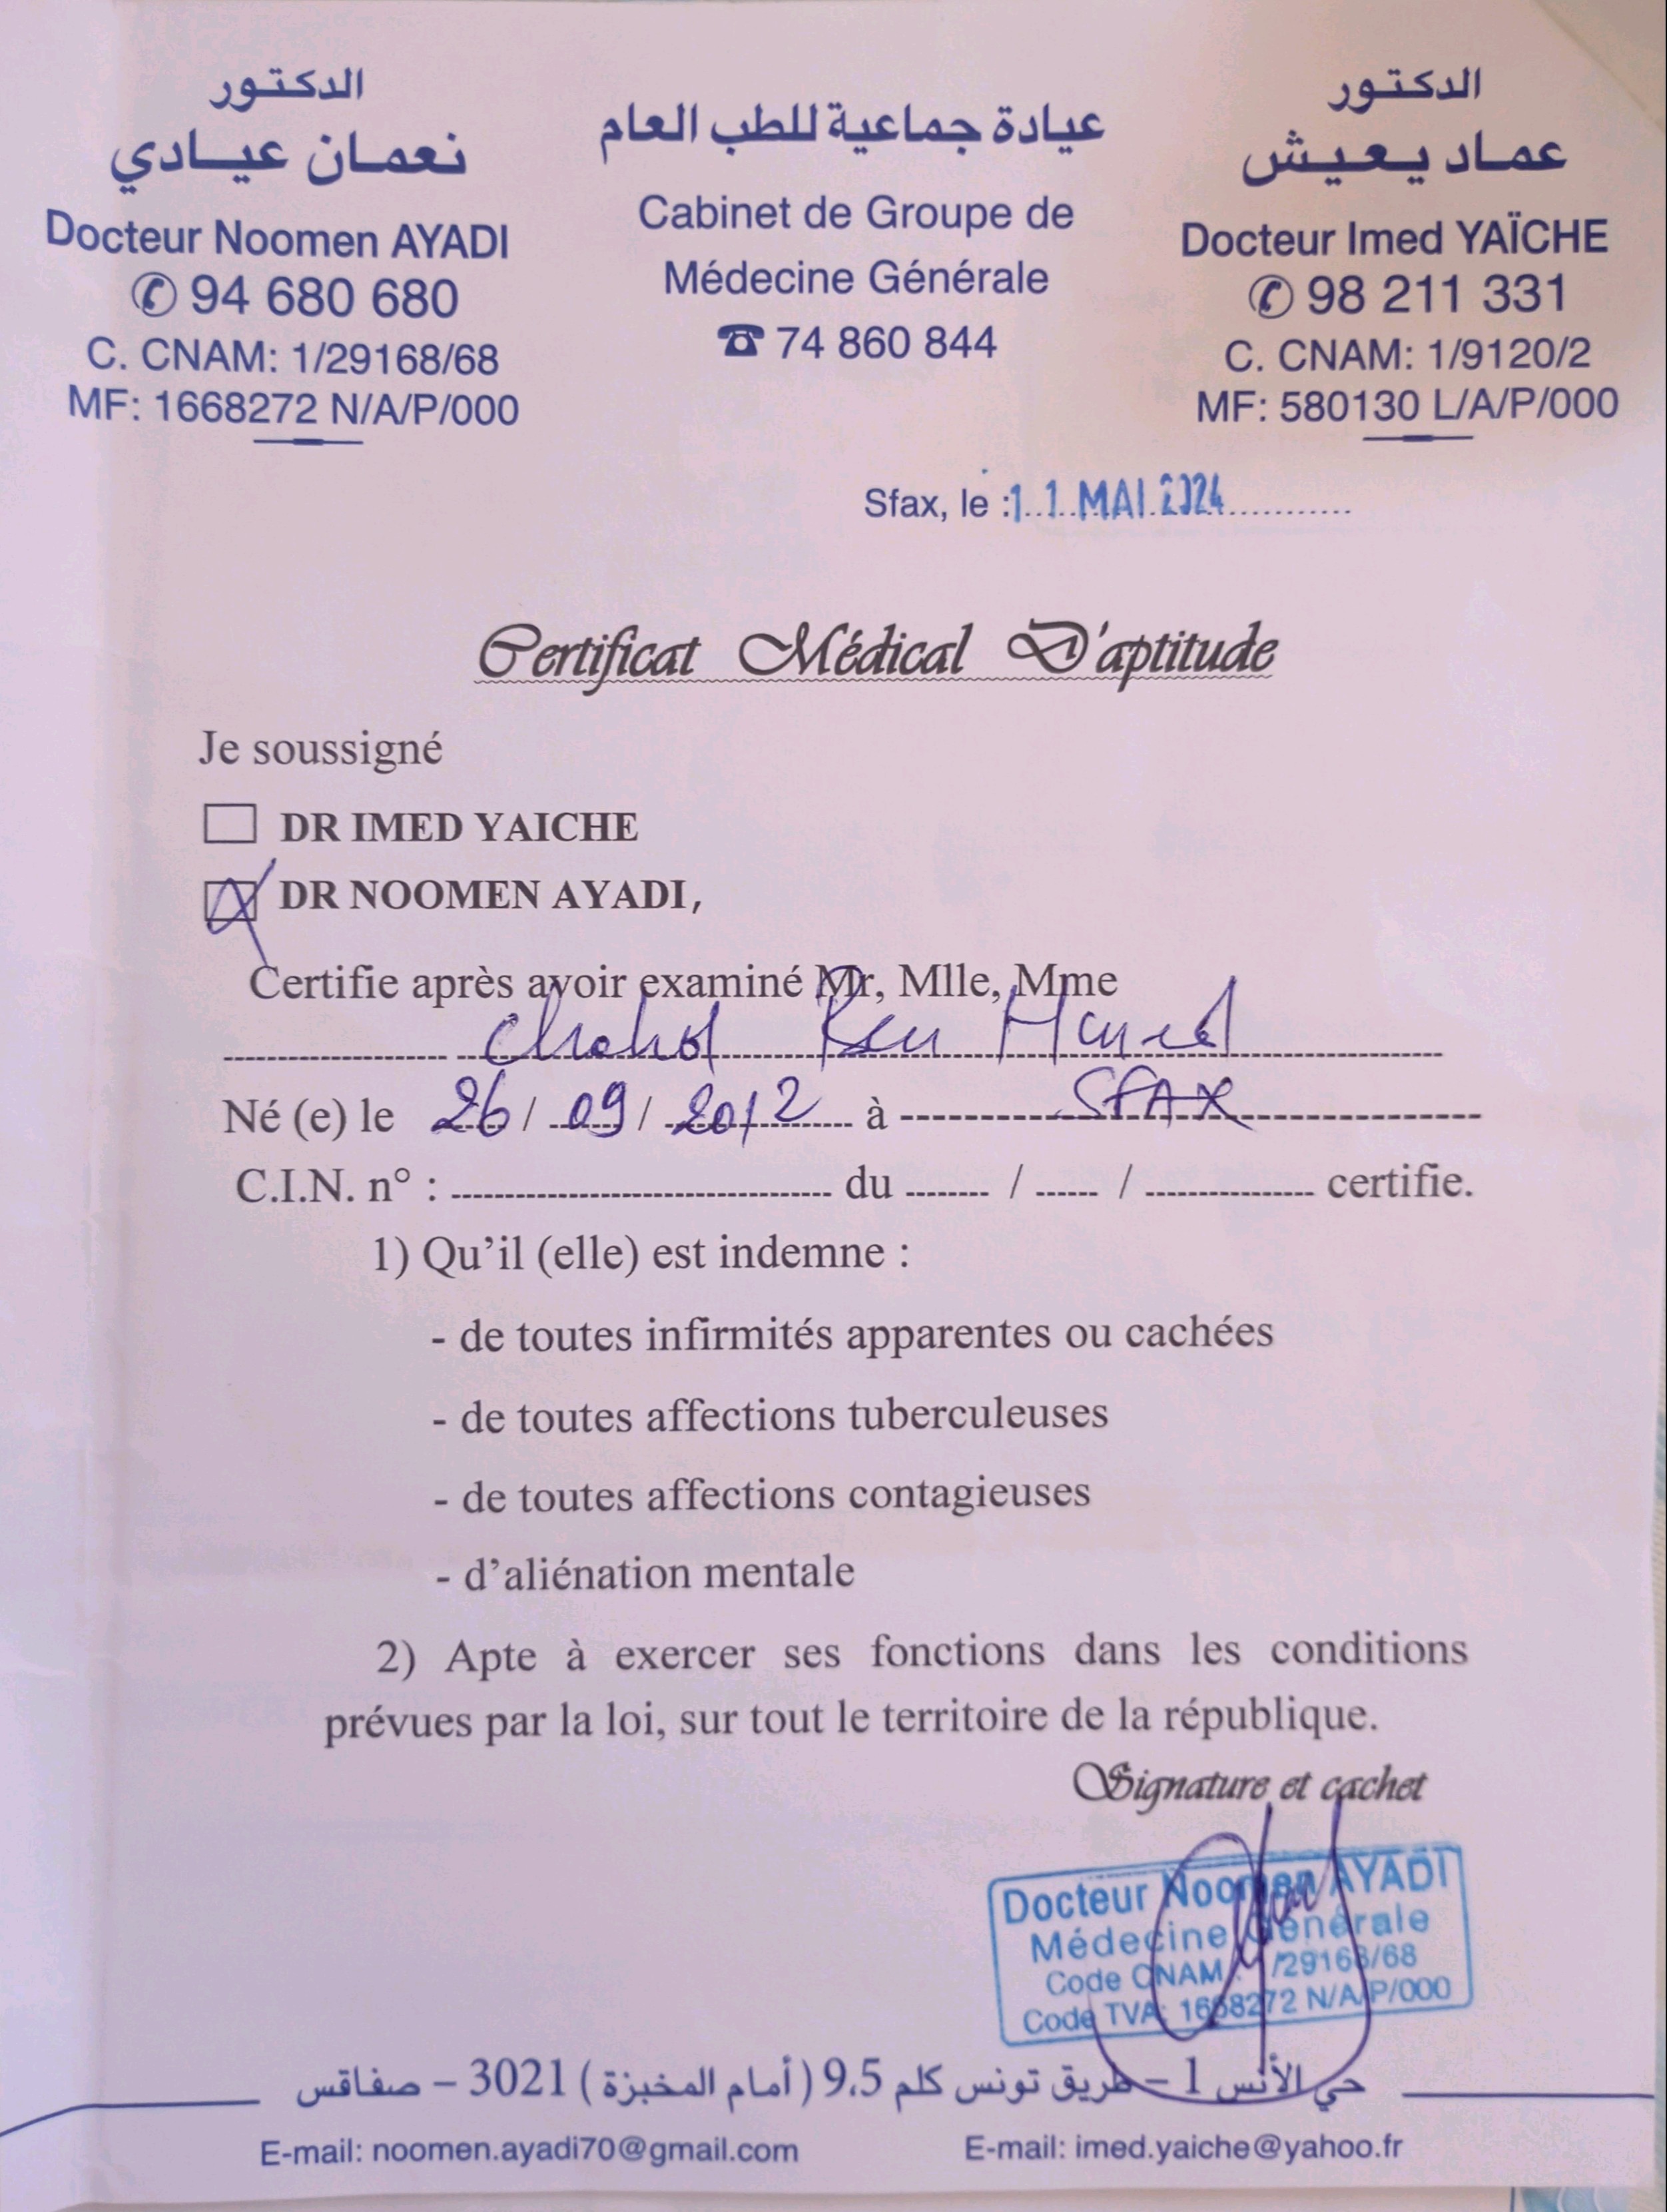 الدكتور
نعمان عيادي
Docteur Noomen AYADI
✆ 94 680 680
C. CNAM: 1/29168/68
MF: 1668272 N/A/P/000
عيادة جماعية للطب العام
Cabinet de Groupe de
Médecine Générale
☎ 74 860 844
الدكتور
عماد يعيش
Docteur Imed YAÏCHE
✆ 98 211 331
C. CNAM: 1/9120/2
MF: 580130 L/A/P/000
Sfax, le : 11 MAI 2024
Certificat Médical D'aptitude
Je soussigné
DR IMED YAICHE
DR NOOMEN AYADI,
Certifie après avoir examiné Mr, Mlle, Mme
Ben
Né (e) le 26 / 09 / 2012 à SFAX
C.I.N. n° : du / / certifie.
1) Qu’il (elle) est indemne :
- de toutes infirmités apparentes ou cachées
- de toutes affections tuberculeuses
- de toutes affections contagieuses
- d’aliénation mentale
2) Apte à exercer ses fonctions dans les conditions
prévues par la loi, sur tout le territoire de la république.
Signature et cachet
Docteur Noomen AYADI
Médecine Générale
Code CNAM /29168/68
Code TVA: 1668272 N/A/P/000
حي الأنس 1 – طريق تونس كلم 9.5 (أمام المخبزة) 3021 – صفاقس
E-mail: noomen.ayadi70@gmail.com
E-mail: imed.yaiche@yahoo.fr